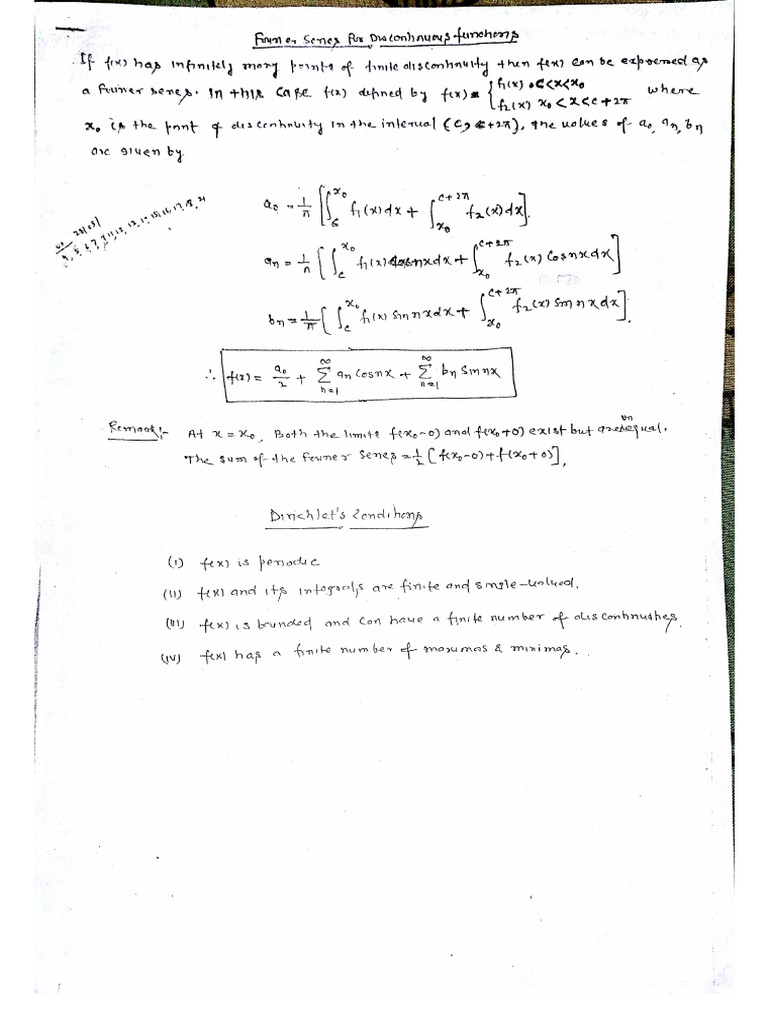 Fourier Series for Discontinuous functions
If f(x) has infinitely many points of finite discontinuity then f(x) can be expressed as
a Fourier series. In this case f(x) defined by f(x) = { f₁(x) , c<x<x₀
f₂(x) x₀<x<c+2π where
x₀ is the point of discontinuity in the interval (c, c+2π), the values of a₀, aₙ, bₙ
are given by
a₀ = 1/π [∫_c^x₀ f₁(x)dx + ∫_x₀^c+2π f₂(x)dx].
aₙ = 1/π [∫_c^x₀ f₁(x) cosnxdx + ∫_x₀^c+2π f₂(x) Cosnxdx]
bₙ = 1/π [∫_c^x₀ f₁(x) Sin nxdx + ∫_x₀^c+2π f₂(x) Sin nxdx].
∴ f(x) = a₀/2 + ∑_n=1^∞ aₙ Cosnx + ∑_n=1^∞ bₙ Sin nx
Remark:- At x = x₀, Both the limits f(x₀-0) and f(x₀+0) exist but are unequal.
The sum of the Fourier Series = 1/2 [f(x₀-0) + f(x₀+0)],
Dirichlet's Conditions
(I) f(x) is periodic
(II) f(x) and its integrals are finite and single-valued.
(III) f(x) is bounded and can have a finite number of discontinuties.
(IV) f(x) has a finite number of maximas & minimas.